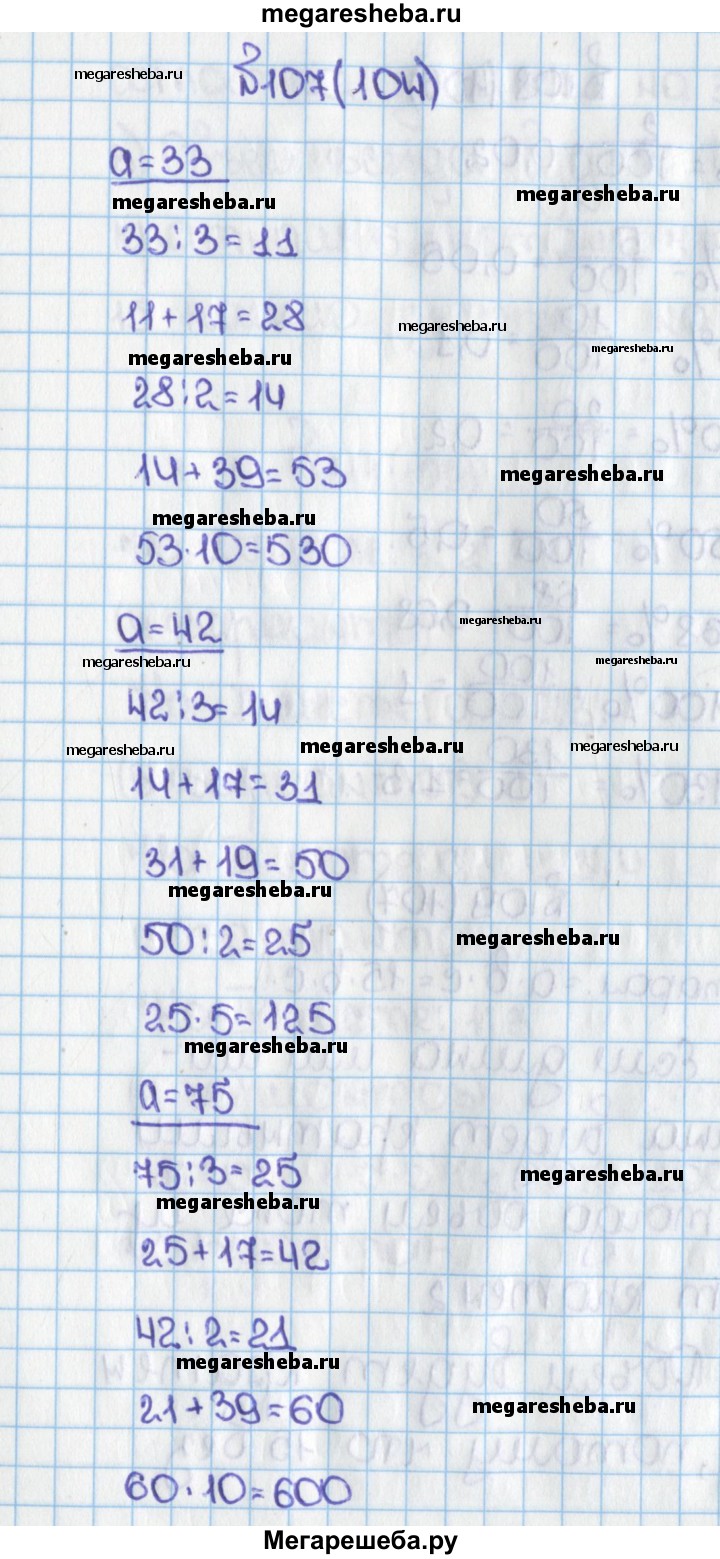 megaresheba.ru
megaresheba.ru
№107(104)
a=33
megaresheba.ru
megaresheba.ru
33:3=11
11+17=28
megaresheba.ru
megaresheba.ru
megaresheba.ru
28:2=14
14+39=53
megaresheba.ru
megaresheba.ru
53·10=530
a=42
megaresheba.ru
megaresheba.ru
megaresheba.ru
42:3=14
megaresheba.ru
megaresheba.ru
megaresheba.ru
14+17=31
31+19=50
megaresheba.ru
50:2=25
megaresheba.ru
25·5=125
megaresheba.ru
a=75
75:3=25
megaresheba.ru
megaresheba.ru
25+17=42
42:2=21
megaresheba.ru
21+39=60
megaresheba.ru
60·10=600
Мегарешеба.ру